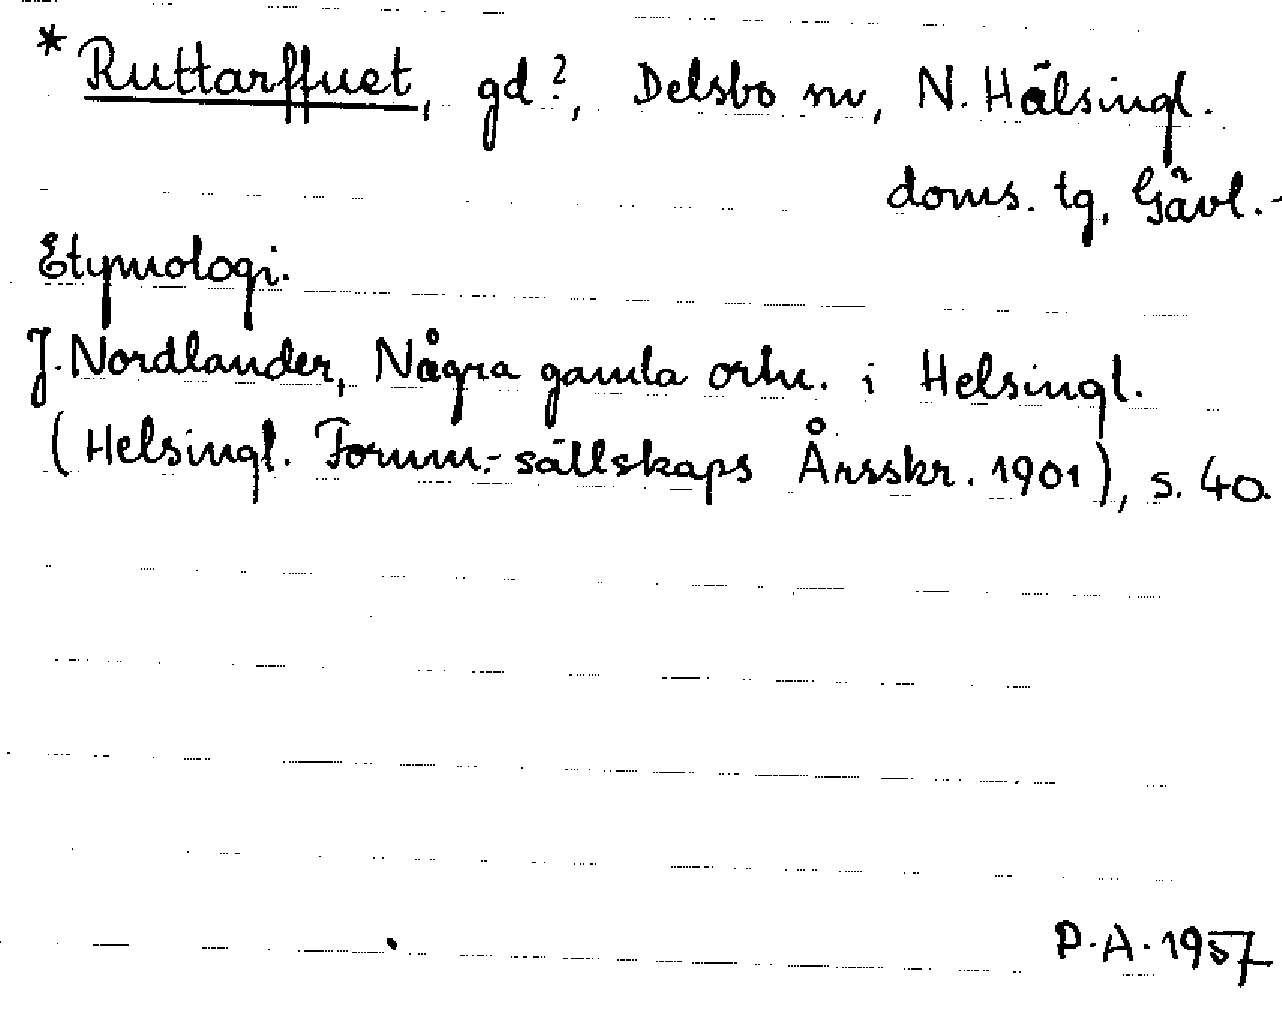 *Ruttarffuet, gd?, Delsbo sn, N. Hälsingl.
doms. tg, Gävl.-
Etymologi.
J. Nordlander, Några gamla ortn. i Helsingl.
(Helsingl. Fornm.-sällskaps Årsskr. 1901), s. 40.
P.A. 1957